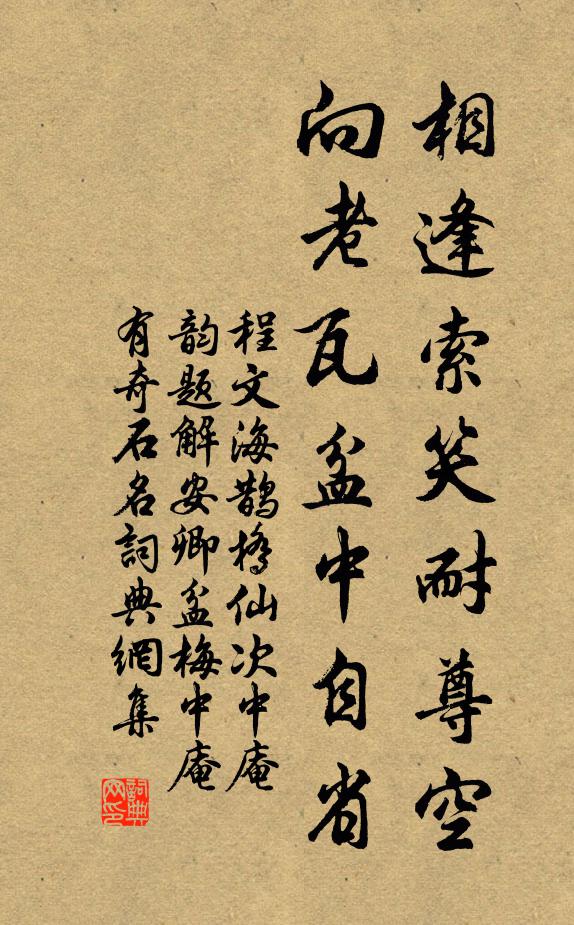 相逢索笑耐尊空
向老瓦盆中自省
程文海鵲橋仙次中庵
韵題解安卿盆梅中庵
有奇石名詞典網集
詞典网印